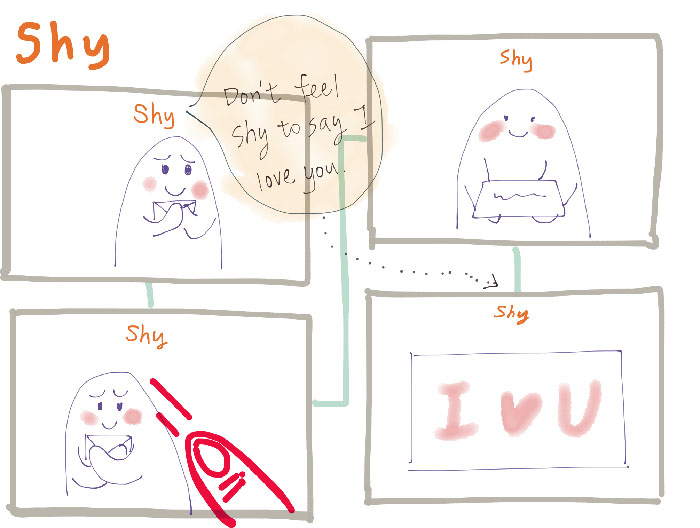 Shy
Shy
Don't feel
Shy to say I
love you.
Shy
Shy
Shy
I ♥ U